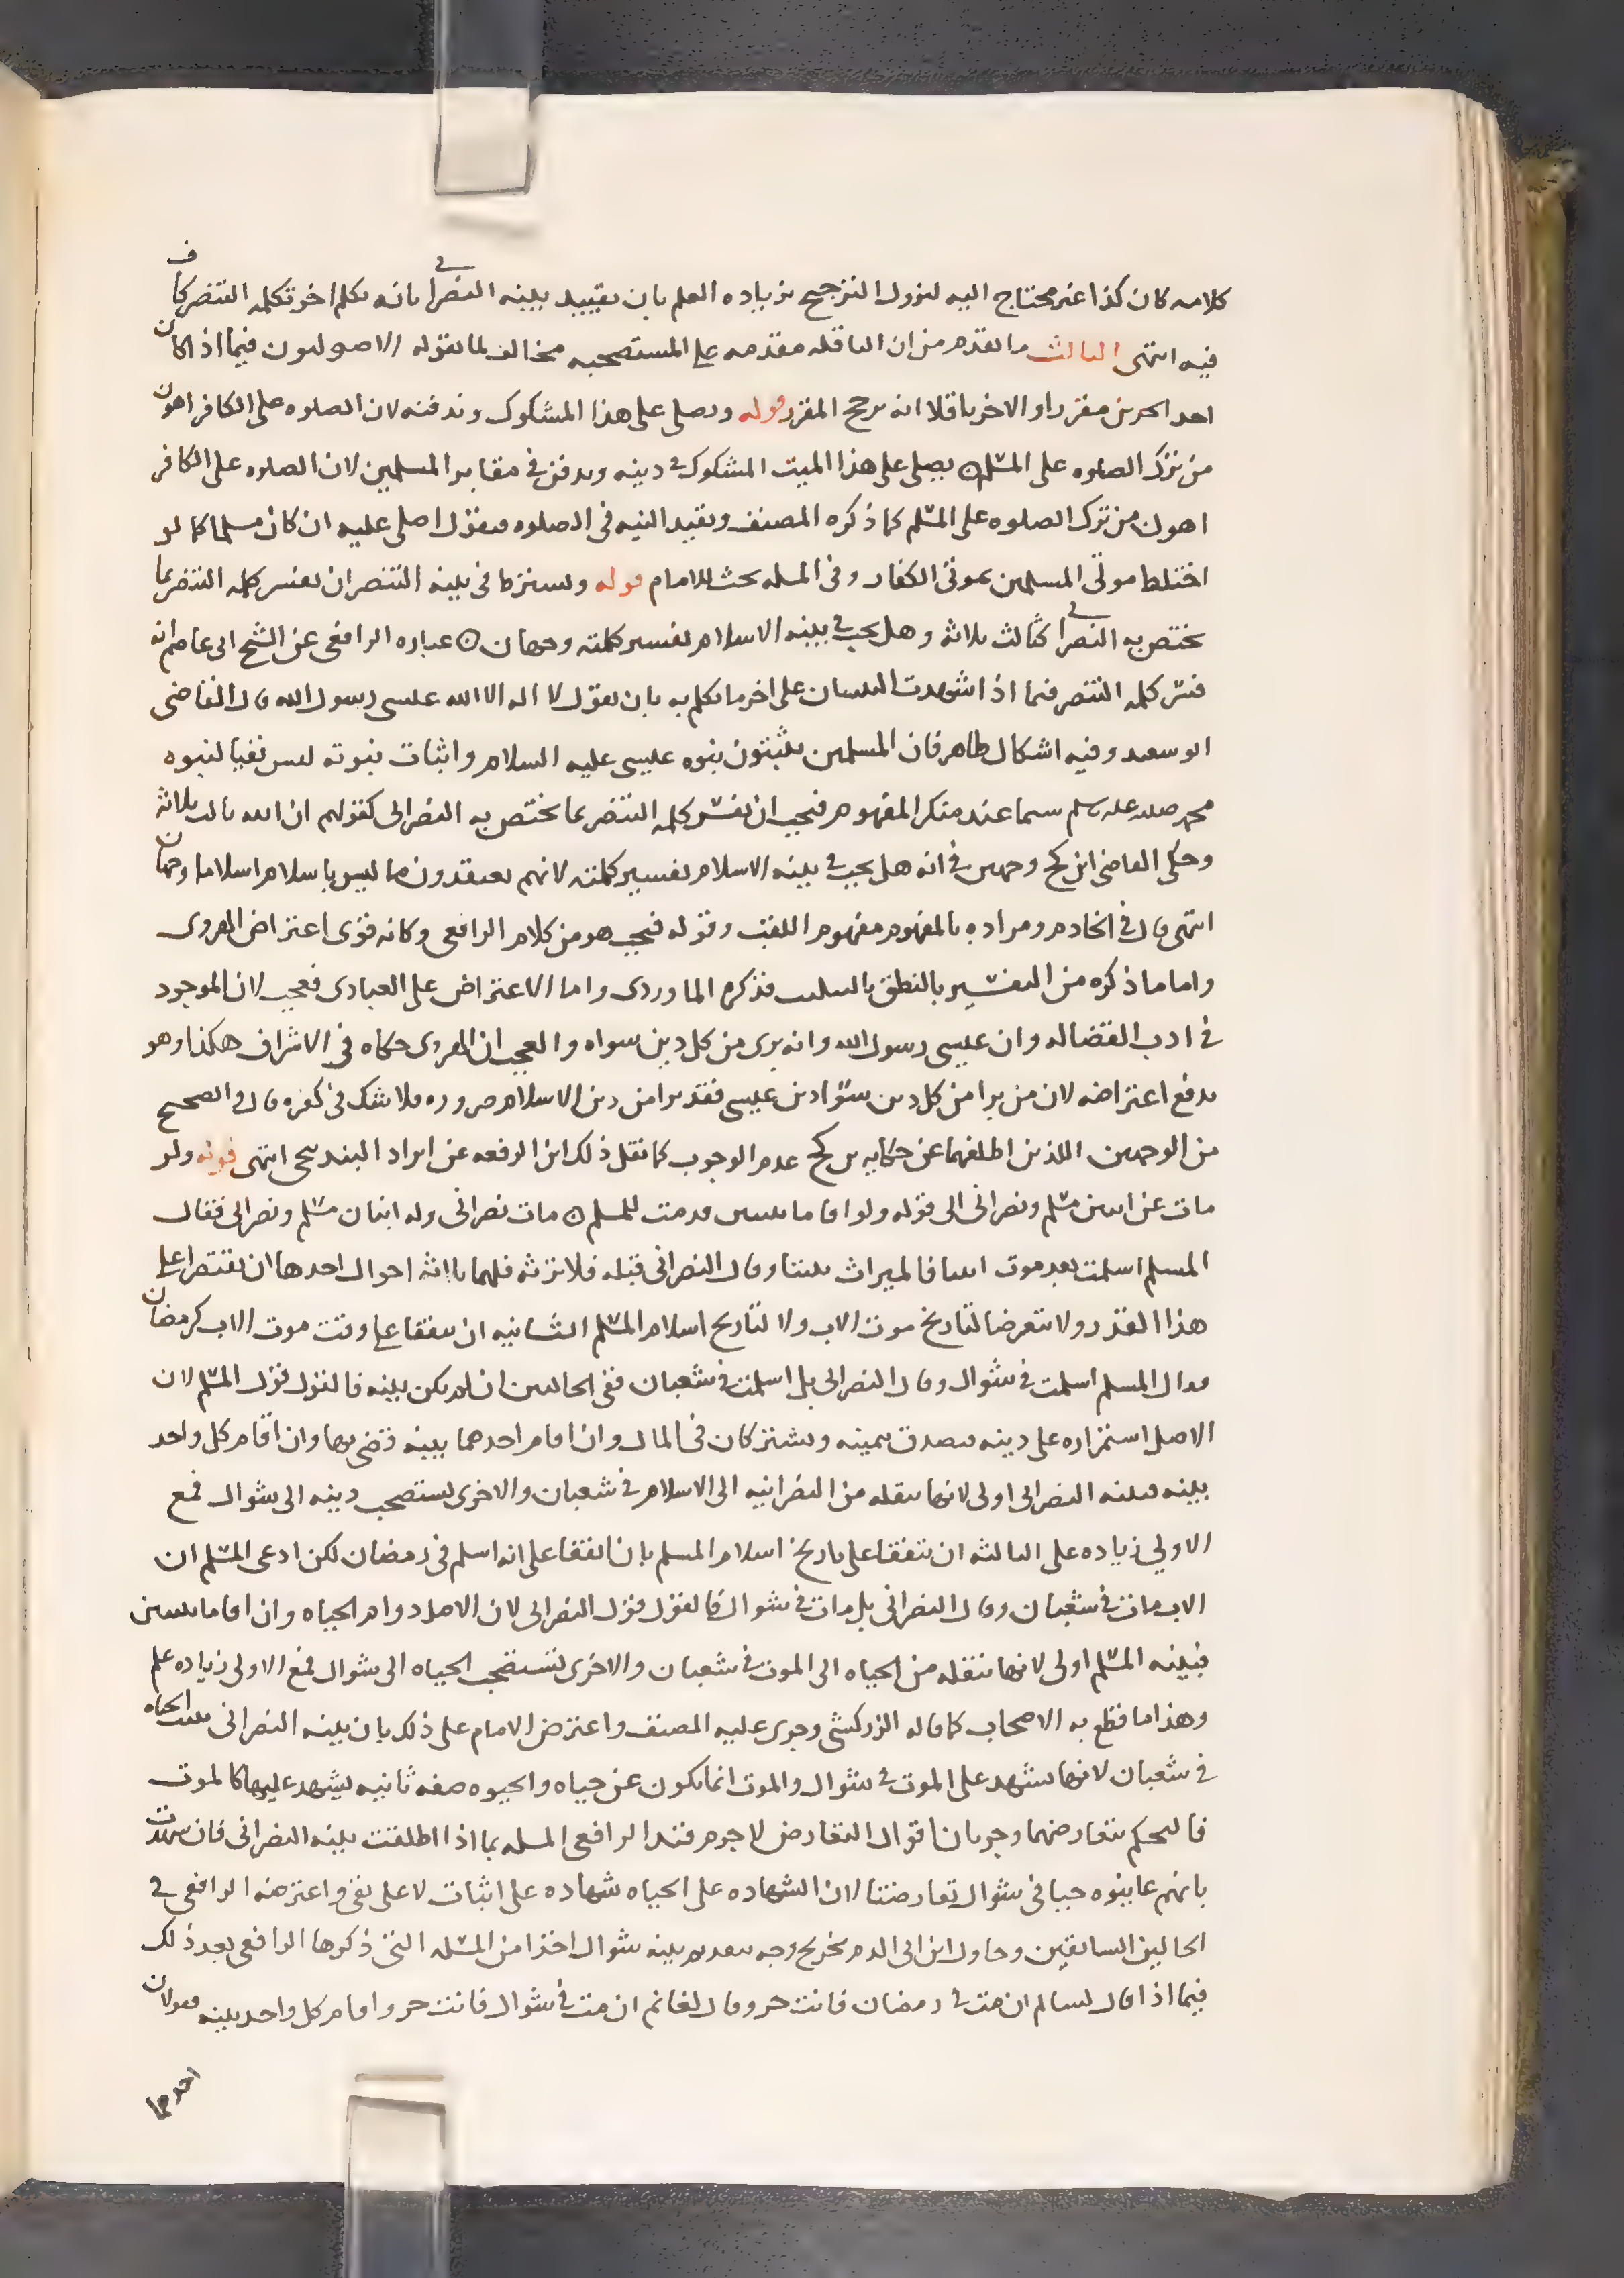 كلامه كان كذا غير محتاج اليه لنزول الترجيح بزياده العلم بان بقييد ببينه النصراني بانه تكلم اخر تكلمه التنصر كاف
فيه انتهى الثالث ما تقدم من ان الناقله مقدمه على المستصحبه مخالف لما يقوله الاصوليون فيما اذا كان
احد الخبرين مقررا والاخر ناقلا انه يرجح المقرر قوله ويصلى على هذا المشكوك وندفنه لان الصلوه على الكافر اهون
من ترك الصلوه على المسلم يصلى على هذا الميت المشكوك في دينه ويدفن في مقابر المسلمين لان الصلوه على الكافر
اهون من ترك الصلوه على المسلم كما ذكره المصنف ويقيد النيه في الصلوه فيقول اصلى عليه ان كان مسلما كما لو
اختلط موتى المسلمين بموتى الكفار وفي المسله بحث للامام قوله ويشترط في بينه التنصر ان يفسر كلمه التنصر بما
يختص به النصراني كثالث ثلاثه وهل يجب في بينه الاسلام تفسير كلمته وجهان عباره الرافعي عن الشيخ ابي عاصم انه
فسر كلمه التنصر فيما اذا شهدت البينتان على اخر ما تكلم به بان يقول لا اله الا الله عيسى رسول الله قال القاضي
ابو سعيد وفيه اشكال ظاهر فان المسلمين يثبتون نبوه عيسى عليه السلام واثبات نبوته ليس نفيا لنبوه
محمد صلى الله عليه وسلم سيما عند منكر المفهوم فيجب ان يفسر كلمه التنصر بما يختص به النصراني كقولهم ان الله ثالث ثلاثه
وحكى القاضي ابن كج وجهين في انه هل يجب في بينه الاسلام تفسير كلمته لانهم يعتقدون ما ليس باسلام اسلاما وجهان
انتهى قال في الخادم ومراده بالمفهوم مفهوم اللقب وقوله فيجب هو من كلام الرافعي وكانه قوى اعتراض الهروى
واما ما ذكره من التفسير بالنطق بالتثليث فذكره الماوردى واما الاعتراض على العبادى فعجب لان الموجود
في ادب القضاله وان عيسى رسول الله وانه برى من كل دين سواه والعجب ان الهروى حكاه في الاشراف هكذا وهو
يدفع اعتراضه لان من برا من كل دين سوا دين عيسى فقد برا من دين الاسلام ضروره فلا شك في كفره قال والصحيح
من الوجهين اللذين اطلقهما عن حكايه بن كج عدم الوجوب كما نقل ذلك ابن الرفعه عن ايراد البندنيجي انتهى قوله ولو
مات عن ابنين مسلم ونصراني الى قوله ولو اقاما بينتين قدمت للمسلم مات نصراني وله ابنان مسلم ونصراني فقال
المسلم اسلمت بعد موت ابينا فالميراث بيننا وقال النصراني قبله فلا ترثه فلهما ثلاثه احوال احدها ان يقتصرا على
هذا القدر ولا يتعرضا لتاريخ موت الاب ولا لتاريخ اسلام المسلم الثانيه ان يتفقا على وقت موت الاب كرمضان
فقال المسلم اسلمت في شوال وقال النصراني بل اسلمت في شعبان ففي الحالين ان لم يكن بينه فالقول قول المسلم لان
الاصل استمراره على دينه فيصدق بيمينه ويشتركان في المال وان اقام احدهما ببينه قضى بها وان اقام كل واحد
بينه فبينه النصراني اولى لانها تنقله من النصرانيه الى الاسلام في شعبان والاخرى تستصحب دينه الى شوال فمع
الاولى زياده على الثالثه ان يتفقا على تاريخ اسلام المسلم بان اتفقا على انه اسلم في رمضان لكن ادعى المسلم ان
الاب مات في شعبان وقال النصراني بل مات في شوال فالقول قول النصراني لان الاصل دوام الحياه وان اقاما بينتين
فبينه المسلم اولى لانها تنقله من الحياه الى الموت في شعبان والاخرى تستصحب الحياه الى شوال فمع الاولى زياده علم
وهذا ما قطع به الاصحاب كما قاله الزركشي وجرى عليه المصنف واعترض الامام على ذلك بان بينه النصراني تثبت الحياه
في شعبان لانها تشهد على الموت في شوال والموت انما يكون عن حياه والحيوه صفه ثانيه يشهد عليها كالموت
فالحكم بتعارضهما وجريان اقوال التعارض لا جرم قيد الرافعي المسله بما اذا اطلقت بينه النصراني فان شهدت
بانهم عاينوه حيا في شوال تعارضتا لان الشهاده على الحياه شهاده على اثبات لا على نفي واعترضه الرافعي في
الحالين السابقين وحاول ابن ابي الدم تخريج وجه بتقديم بينه شوال اخذا من المسله التي ذكرها الرافعي بعد ذلك
فيما اذا قال لسالم ان مت في رمضان فانت حر وقال لغانم ان مت في شوال فانت حر واقام كل واحد بينه فقولان
احدهما